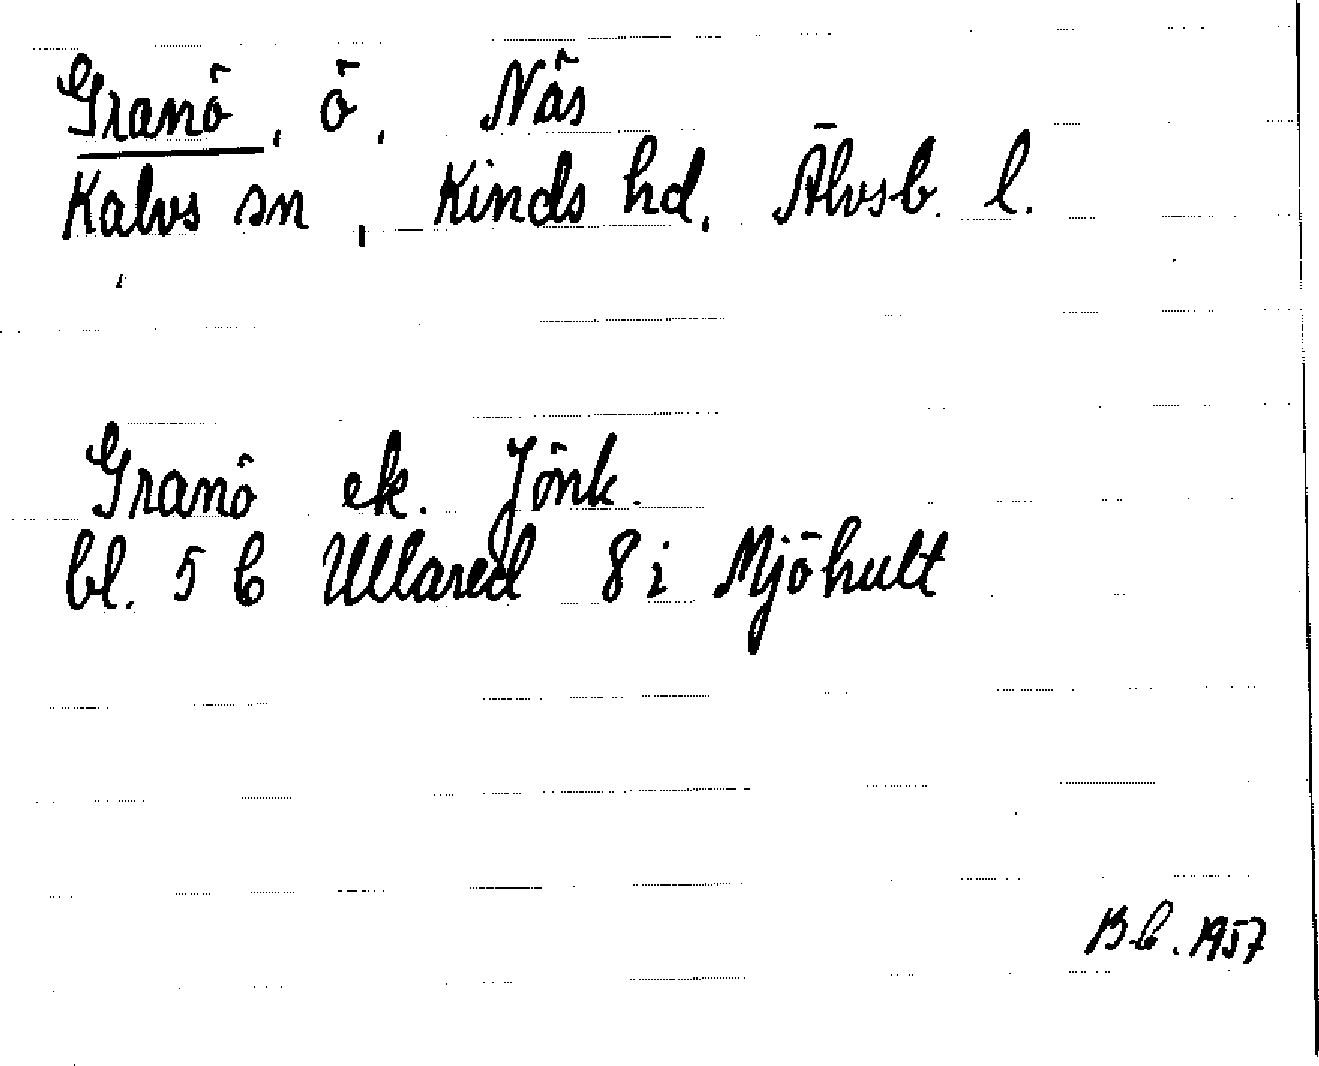 Granö, ö, Näs
Kalvs sn, Kinds hd, Älvsb. l.
Granö ek. Jönk.
bl. 5 C Ullared 8 i Mjöhult
B b. 1957